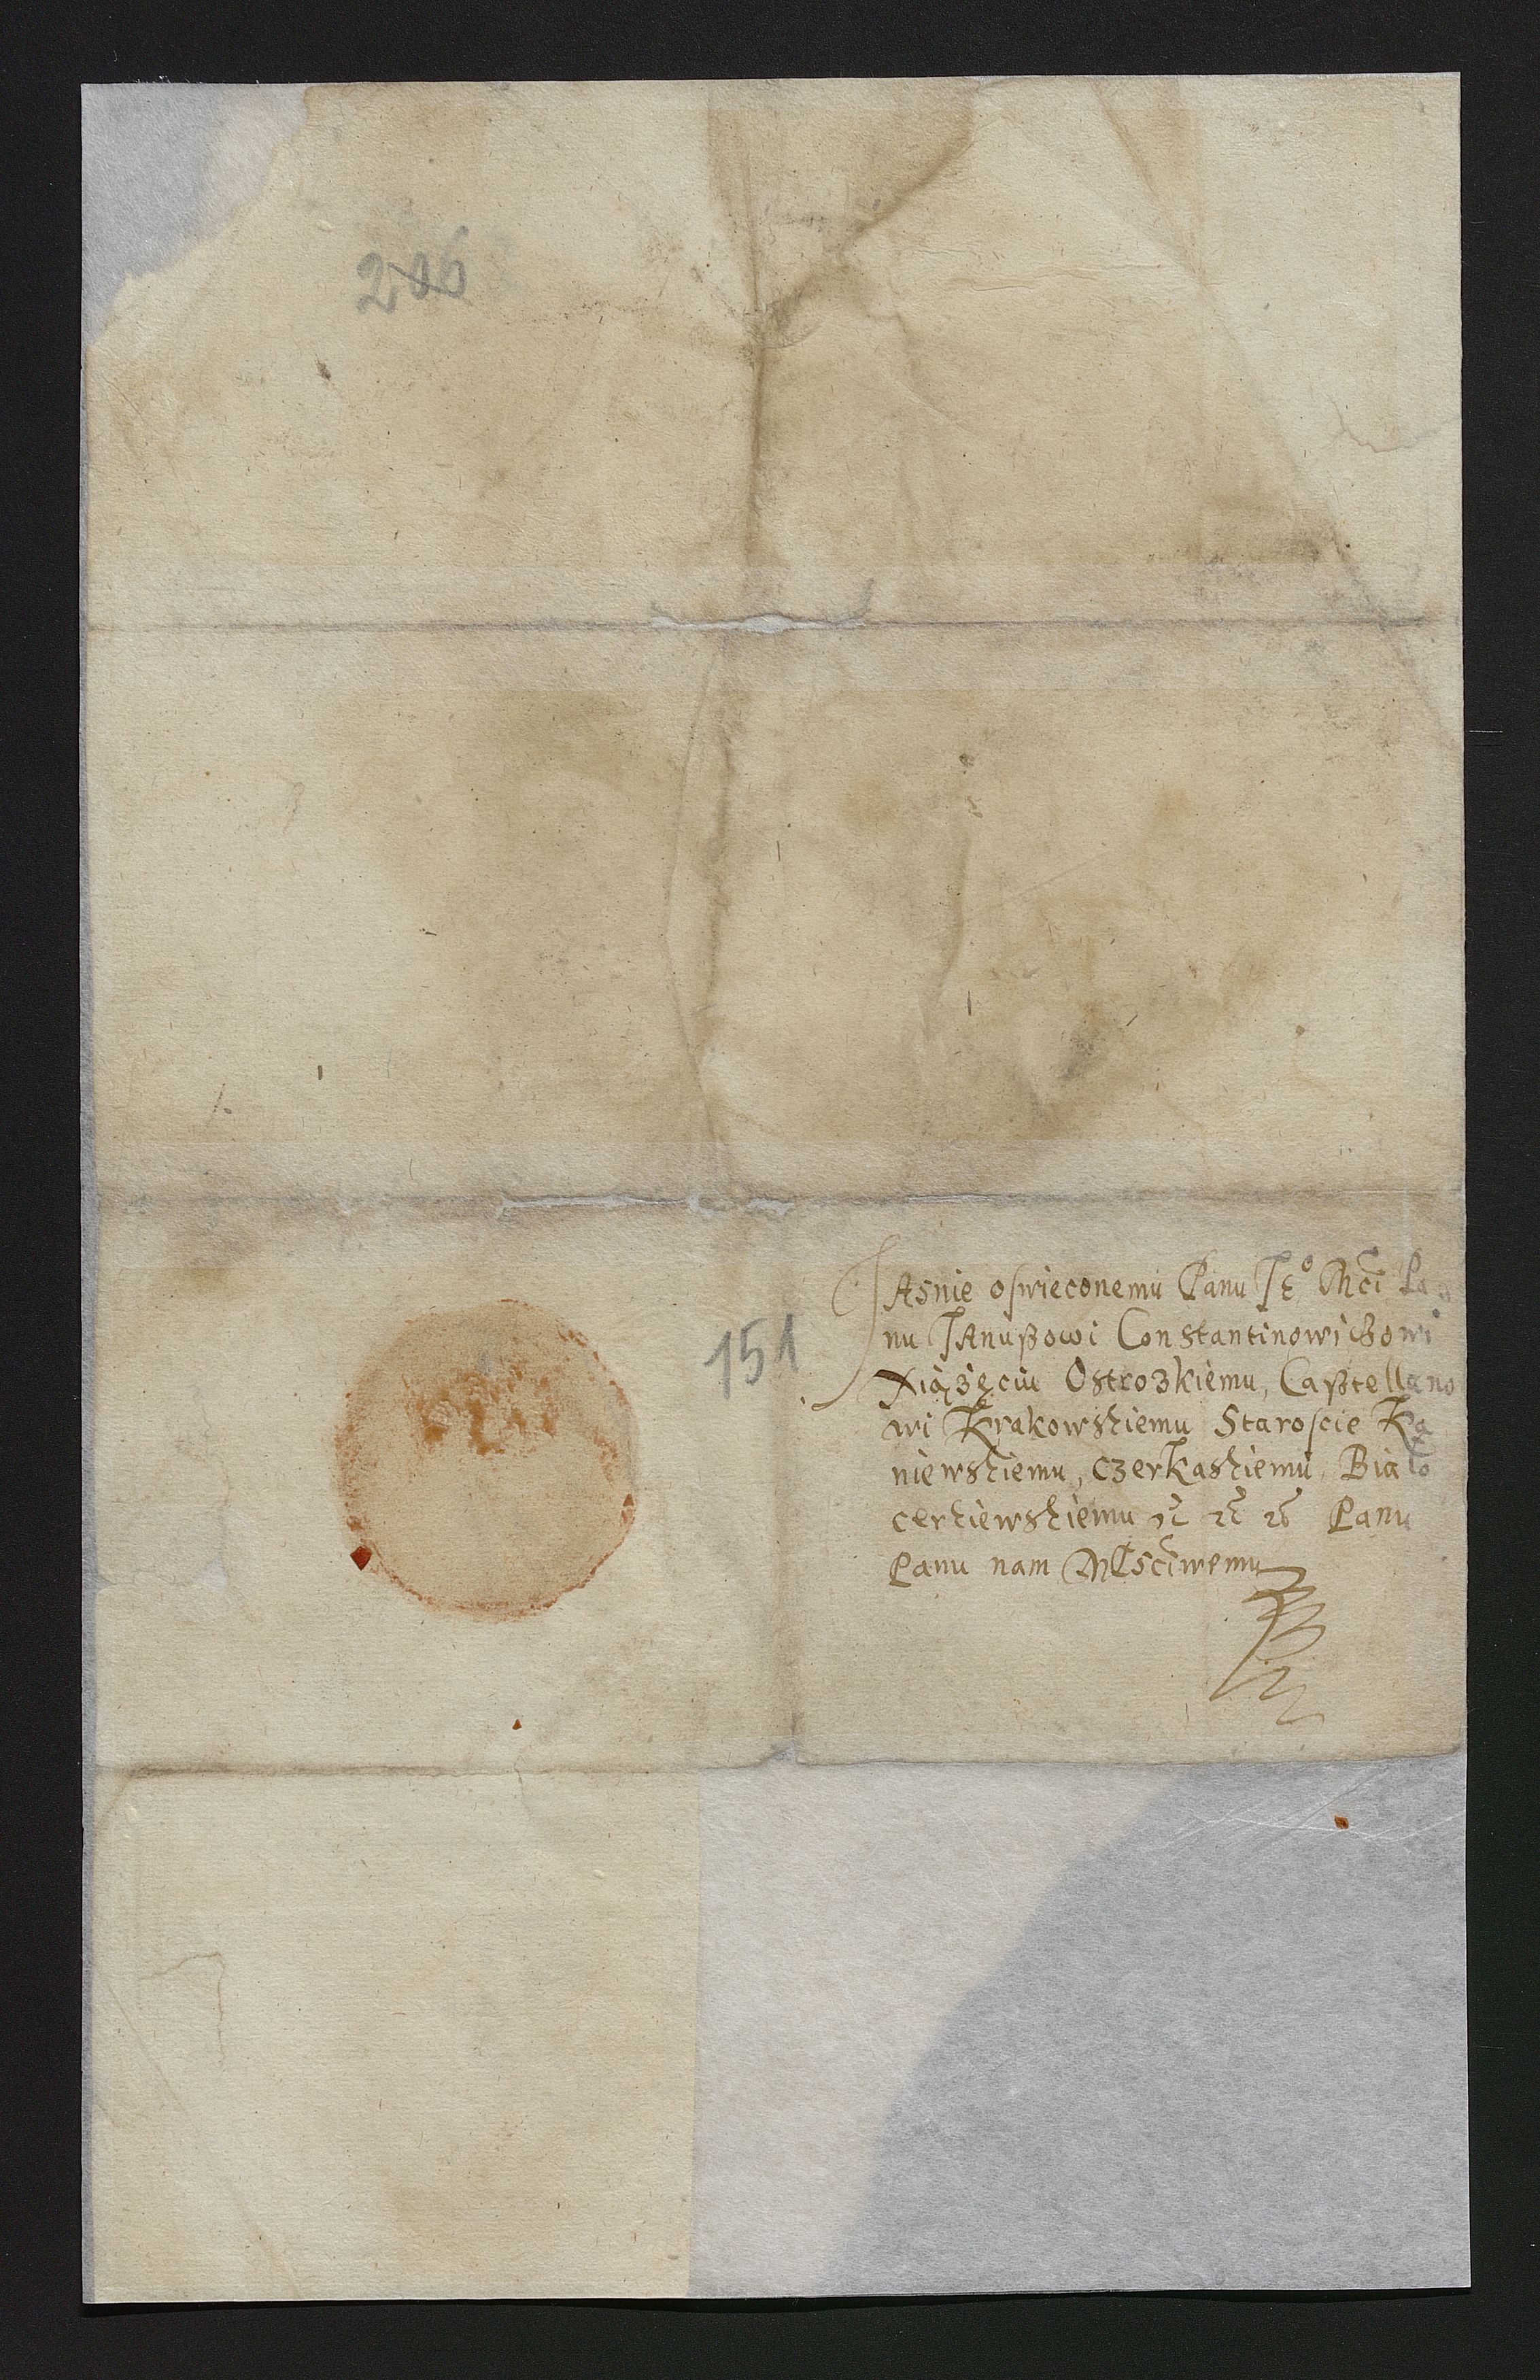 206
151
Jasnie oswieconemu Panu Je° Mci Pa
nu Janußowi Constantinowiczowi
Xiążęciu Ostrozkiemu, Caßtellano
wi Krakowskiemu Staroscie Ka
niewskiemu, Czerkaskiemu, Biało
cerkiewskiemu etc etc etc Panu
Panu nam Mśćiwemu